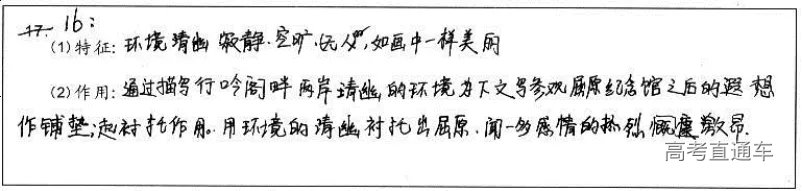 17. 16:
(1)特征: 环境清幽 寂静.空旷.无人,如画中一样美丽
(2)作用: 通过描写行吟阁畔两岸清幽的环境为下文写参观屈原纪念馆之后的遐想
作铺垫;起衬托作用。用环境的清幽衬托出屈原.闻一多感情的热烈 慷慨激昂.
高考直通车